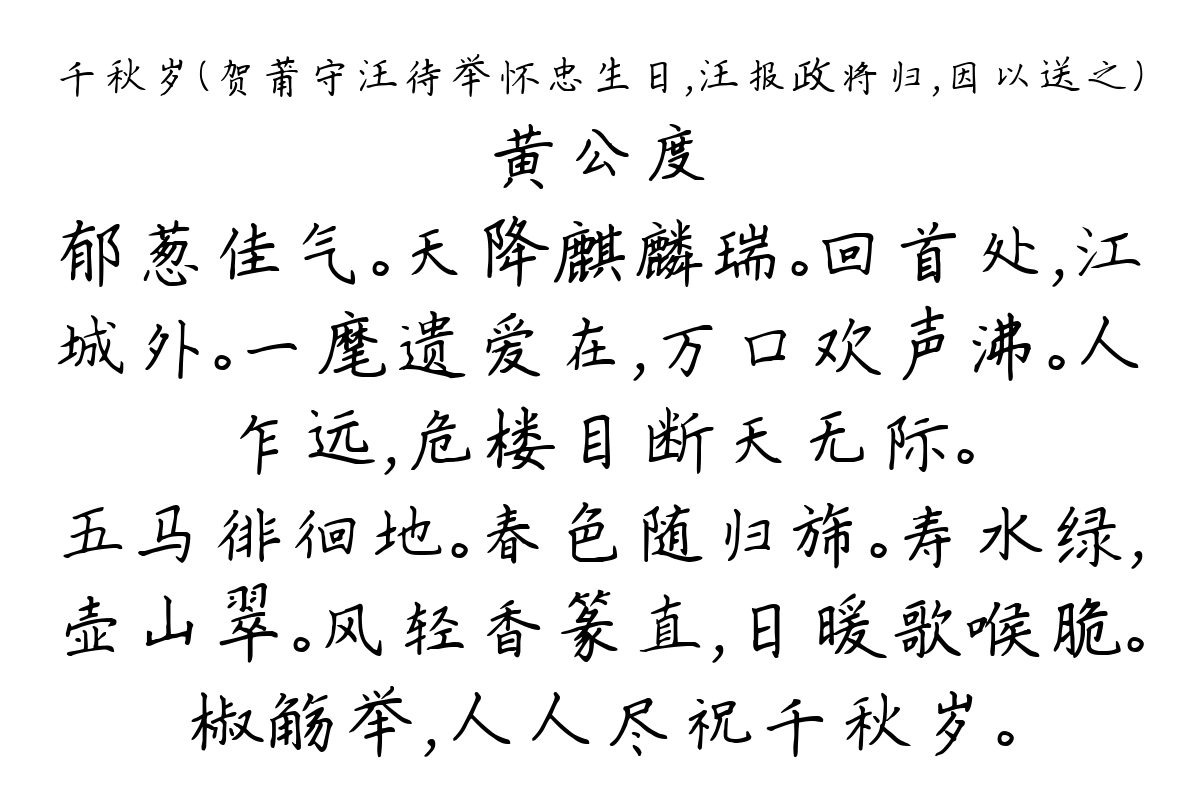 千秋岁(贺莆守汪待举怀忠生日,汪报政将归,因以送之)
黄公度
郁葱佳气。天降麒麟瑞。回首处,江
城外。一麾遗爱在,万口欢声沸。人
乍远,危楼目断天无际。
五马徘徊地。春色随归旆。寿水绿,
壶山翠。风轻香篆直,日暖歌喉脆。
椒觞举,人人尽祝千秋岁。